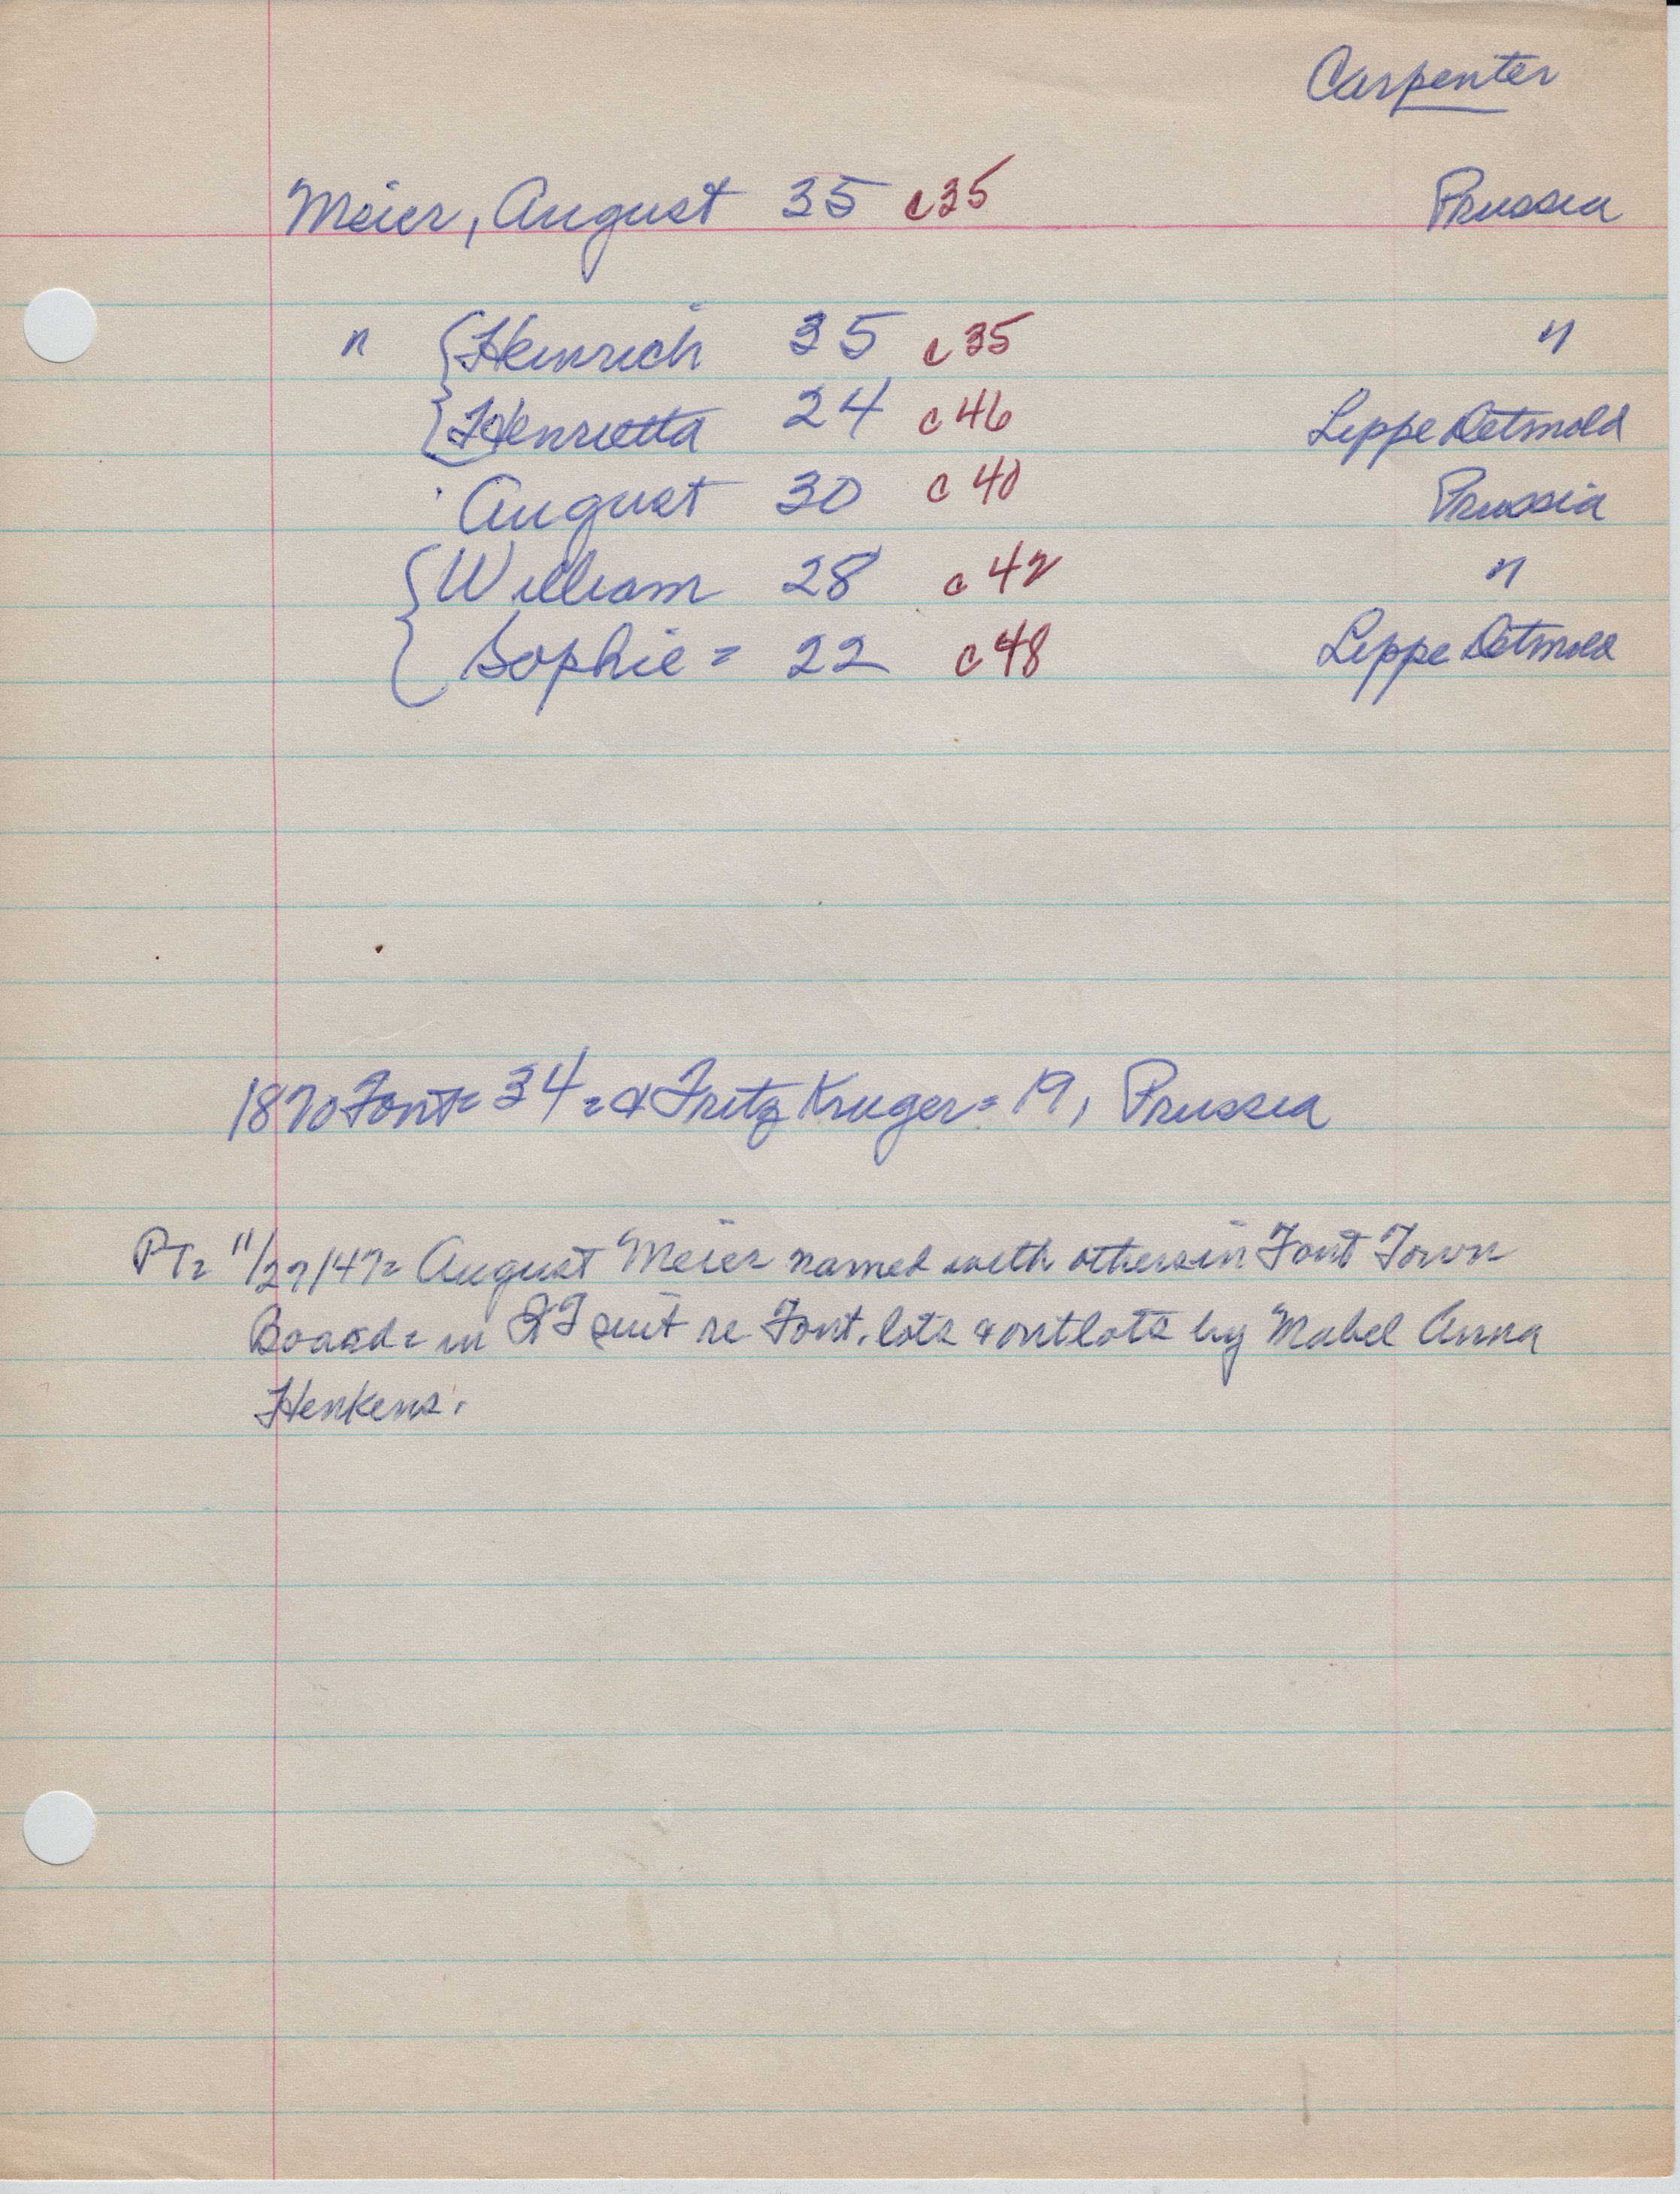 Carpenter
Meier, August 35 c35 Prussia
" Heinrich 35 c35 "
Henrietta 24 c46 Lippe Detmold
August 30 c40 Prussia
William 28 c42 "
Sophie = 22 c48 Lippe Detmold
1870 Font = 34 = & Fritz Kruger = 19, Prussia
PT = 11/27/47 = August Meier named with others in Font Town
Board = in QT suit re Font. lots & outlots by Mabel Anna
Henkens.